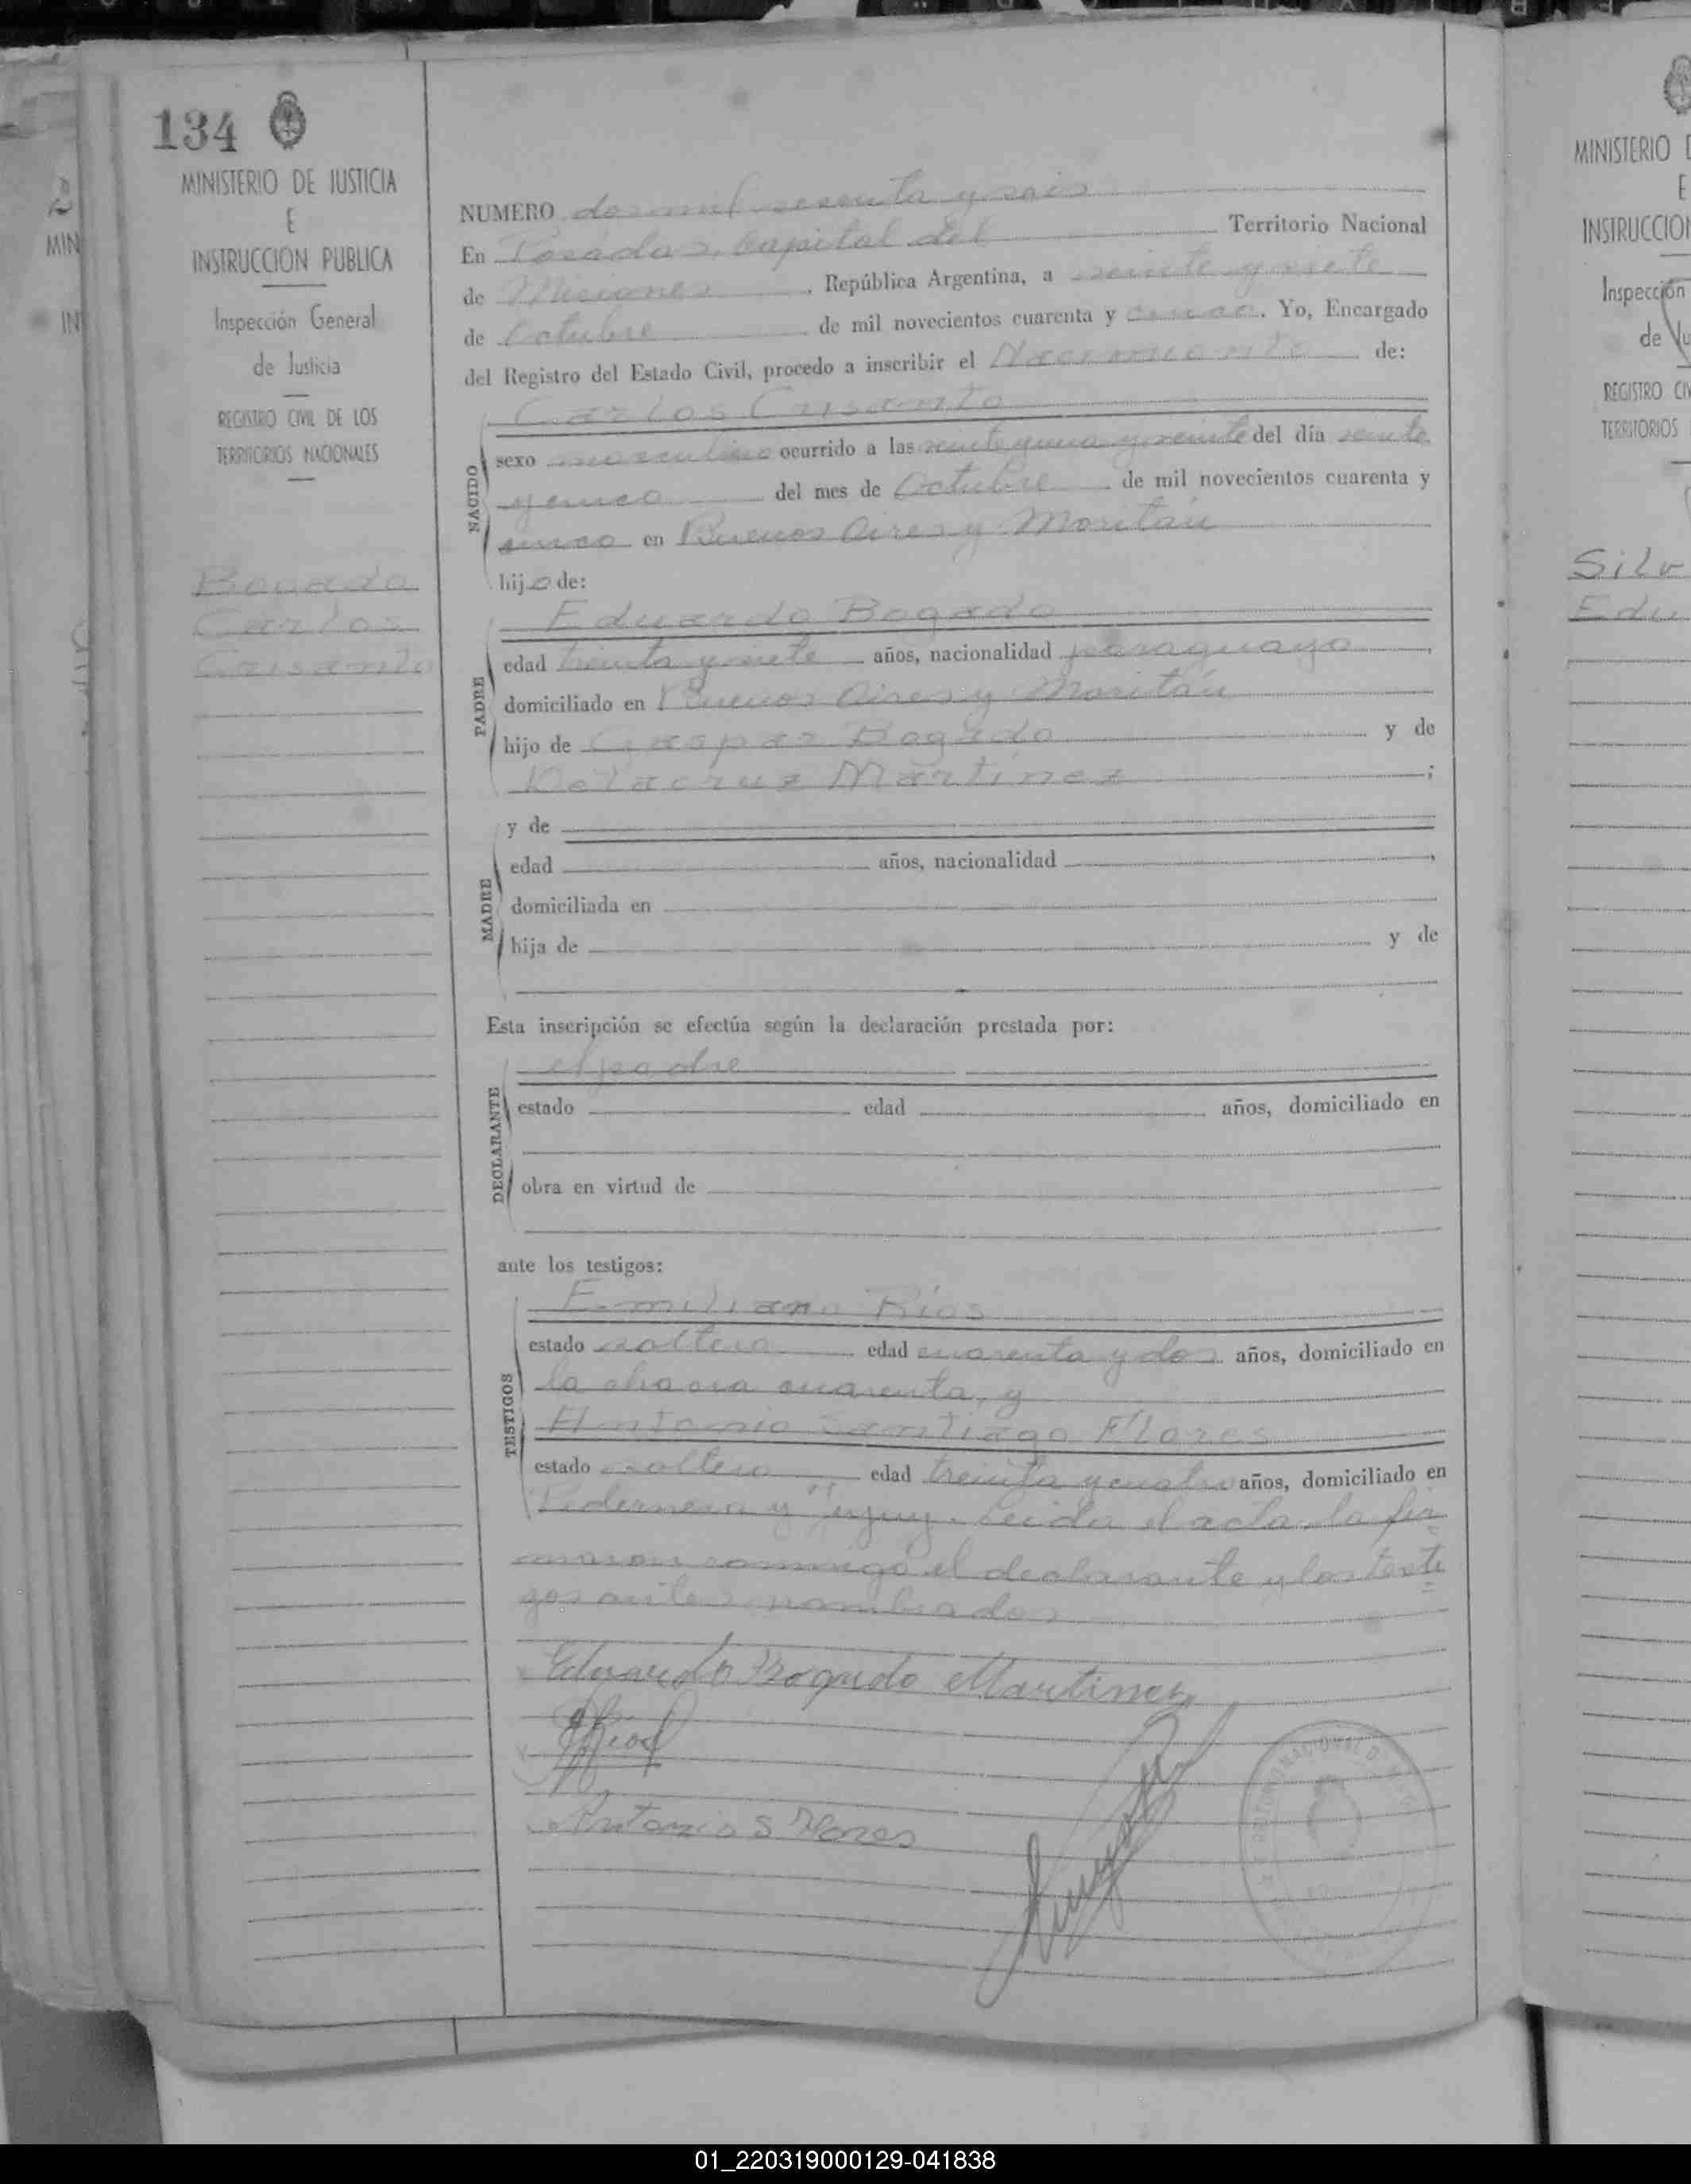 134
MINISTERIO DE JUSTICIA
E
INSTRUCCION PUBLICA
Inspección General
de Justicia
REGISTRO CIVIL DE LOS
TERRITORIOS NACIONALES
Bogado
Carlos
Crisanto
NUMERO dos mil sesenta y seis
En Posadas, Capital del Territorio Nacional
de Misiones, República Argentina, a veinte y siete
de Octubre de mil novecientos cuarenta y cinco. Yo, Encargado
del Registro del Estado Civil, procedo a inscribir el Nacimiento de:
Carlos Crisanto
NACIDO
sexo masculino ocurrido a las veinte y una y veinte del día veinte
y cinco del mes de Octubre de mil novecientos cuarenta y
cinco en Buenos Aires y Moritán
hijo de:
Eduardo Bogado
PADRE
edad treinta y siete años, nacionalidad paraguayo,
domiciliado en Buenos Aires y Moritán
hijo de Gaspar Bogado y de
Delacruz Martinez;
y de
MADRE
edad años, nacionalidad ,
domiciliada en
hija de y de
Esta inscripción se efectúa según la declaración prestada por:
el padre
DECLARANTE
estado edad años, domiciliado en
obra en virtud de
ante los testigos:
Emiliano Ríos
TESTIGOS
estado soltero edad cuarenta y dos años, domiciliado en
la chacra cuarenta, y
Antonio Santiago Flores
estado soltero edad treinta y cuatro años, domiciliado en
Pedernera y Jujuy. Leída el acta la fir
maron conmigo el declarante y los testi
gos antes nombrados
Eduardo Bogado Martinez
Antonio S Flores
MINISTERIO
E
INSTRUCCION
Inspección
de Ju
REGISTRO CIV
TERRITORIOS
Silv
Edu
MIN
IN
01_220319000129-041838